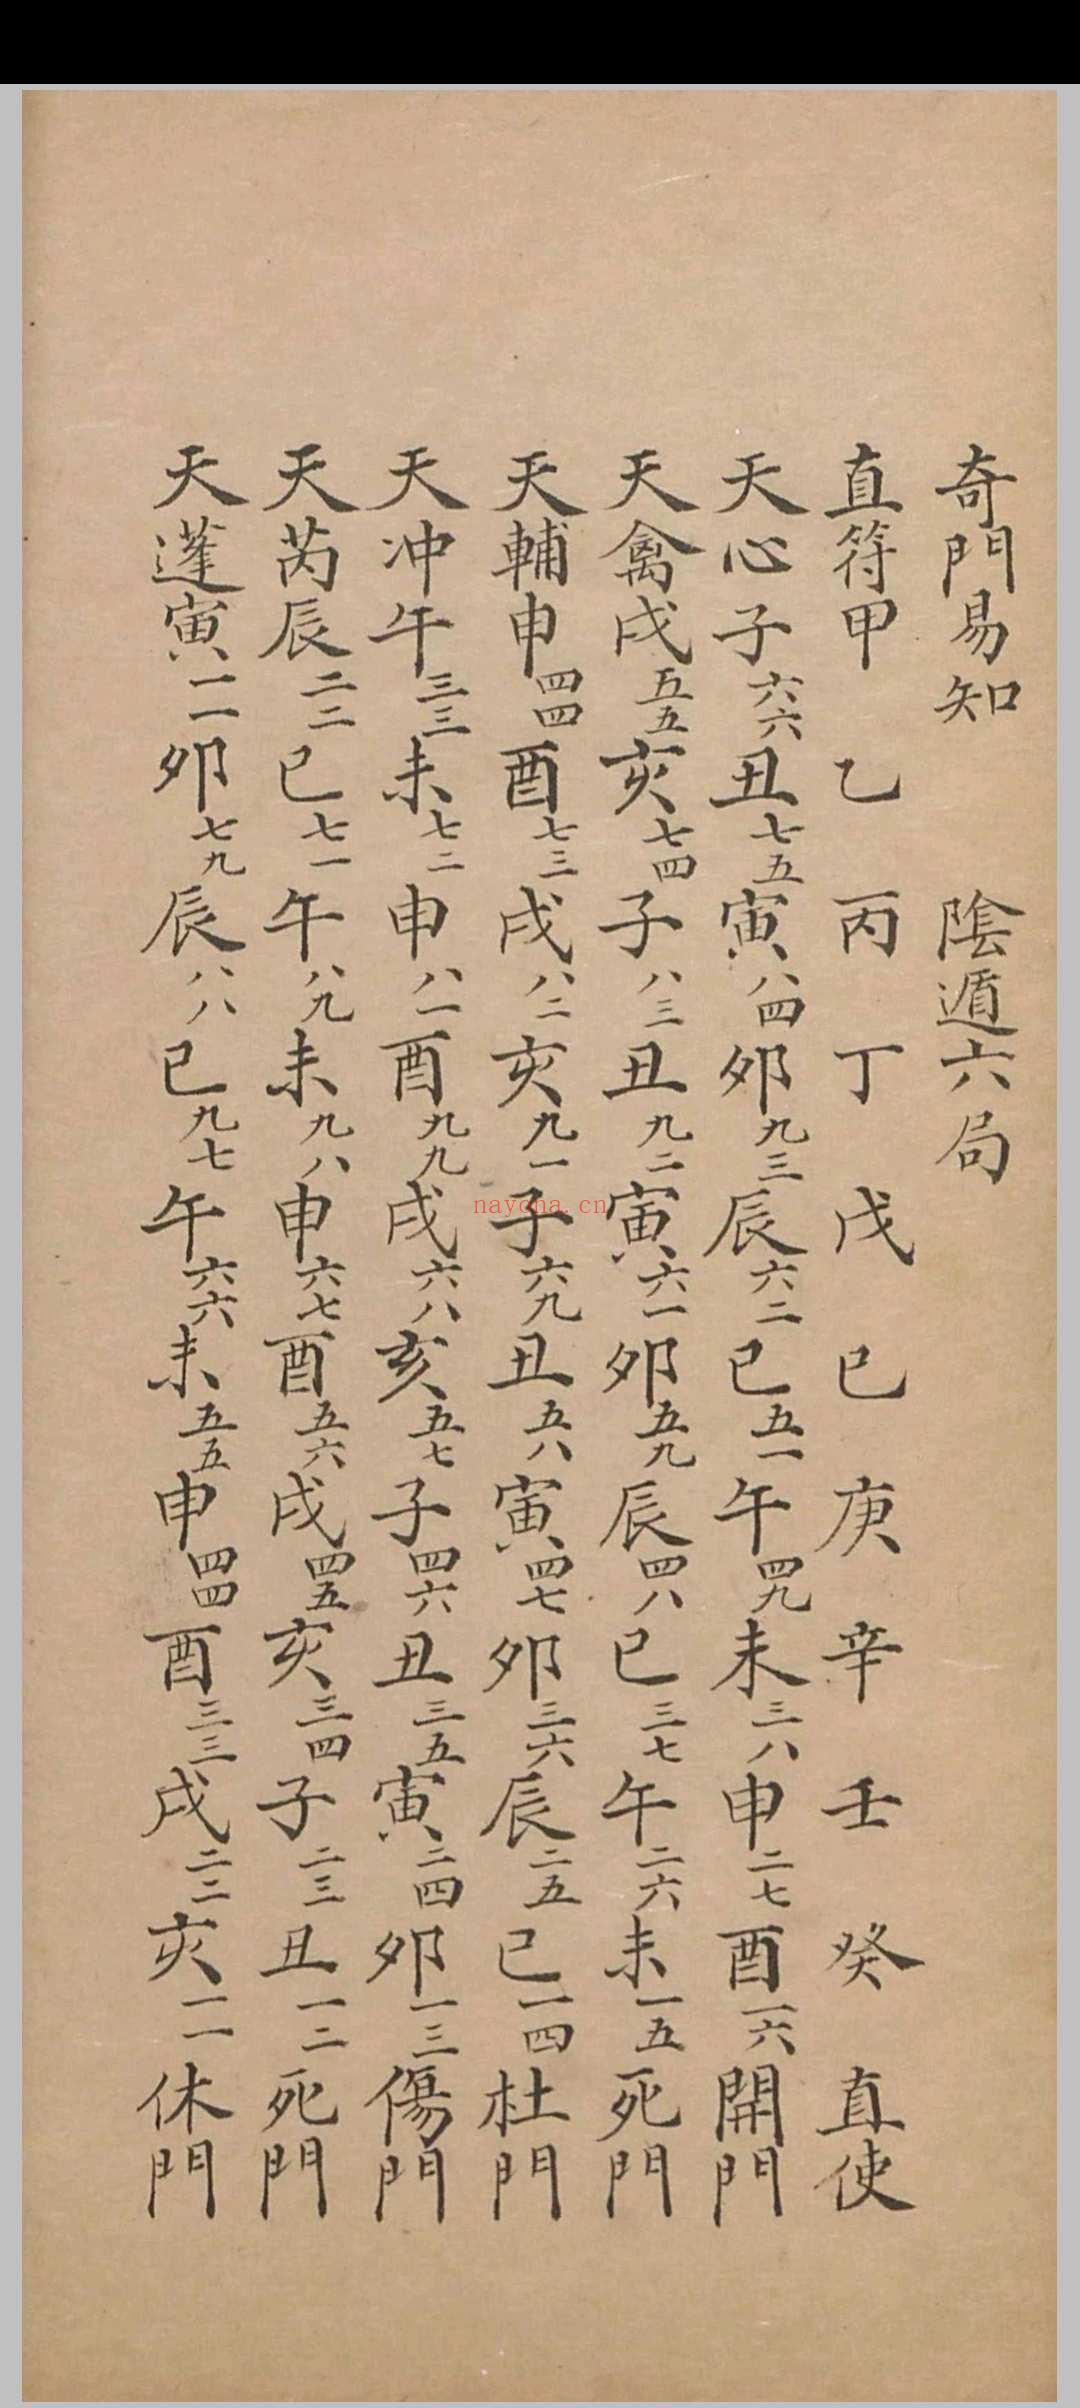 奇門易知 陰遁六局
直符甲 乙 丙 丁 戊 己 庚 辛 壬 癸 直使
天心子六六丑七五寅八四卯九三辰六二巳五一午四九未三八申二七酉一六開門
天禽戌五五亥七四子八三丑九二寅六一卯五九辰四八巳三七午二六未一五死門
天輔申四四酉七三戌八二亥九一子六九丑五八寅四七卯三六辰二五巳一四杜門
天冲午三三未七二申八一酉九九戌六八亥五七子四六丑三五寅二四卯一三傷門
天芮辰二二巳七一午八九未九八申六七酉五六戌四五亥三四子二三丑一二死門
天蓬寅一一卯七九辰八八巳九七午六六未五五申四四酉三三戌二二亥一一休門
nayona.cn